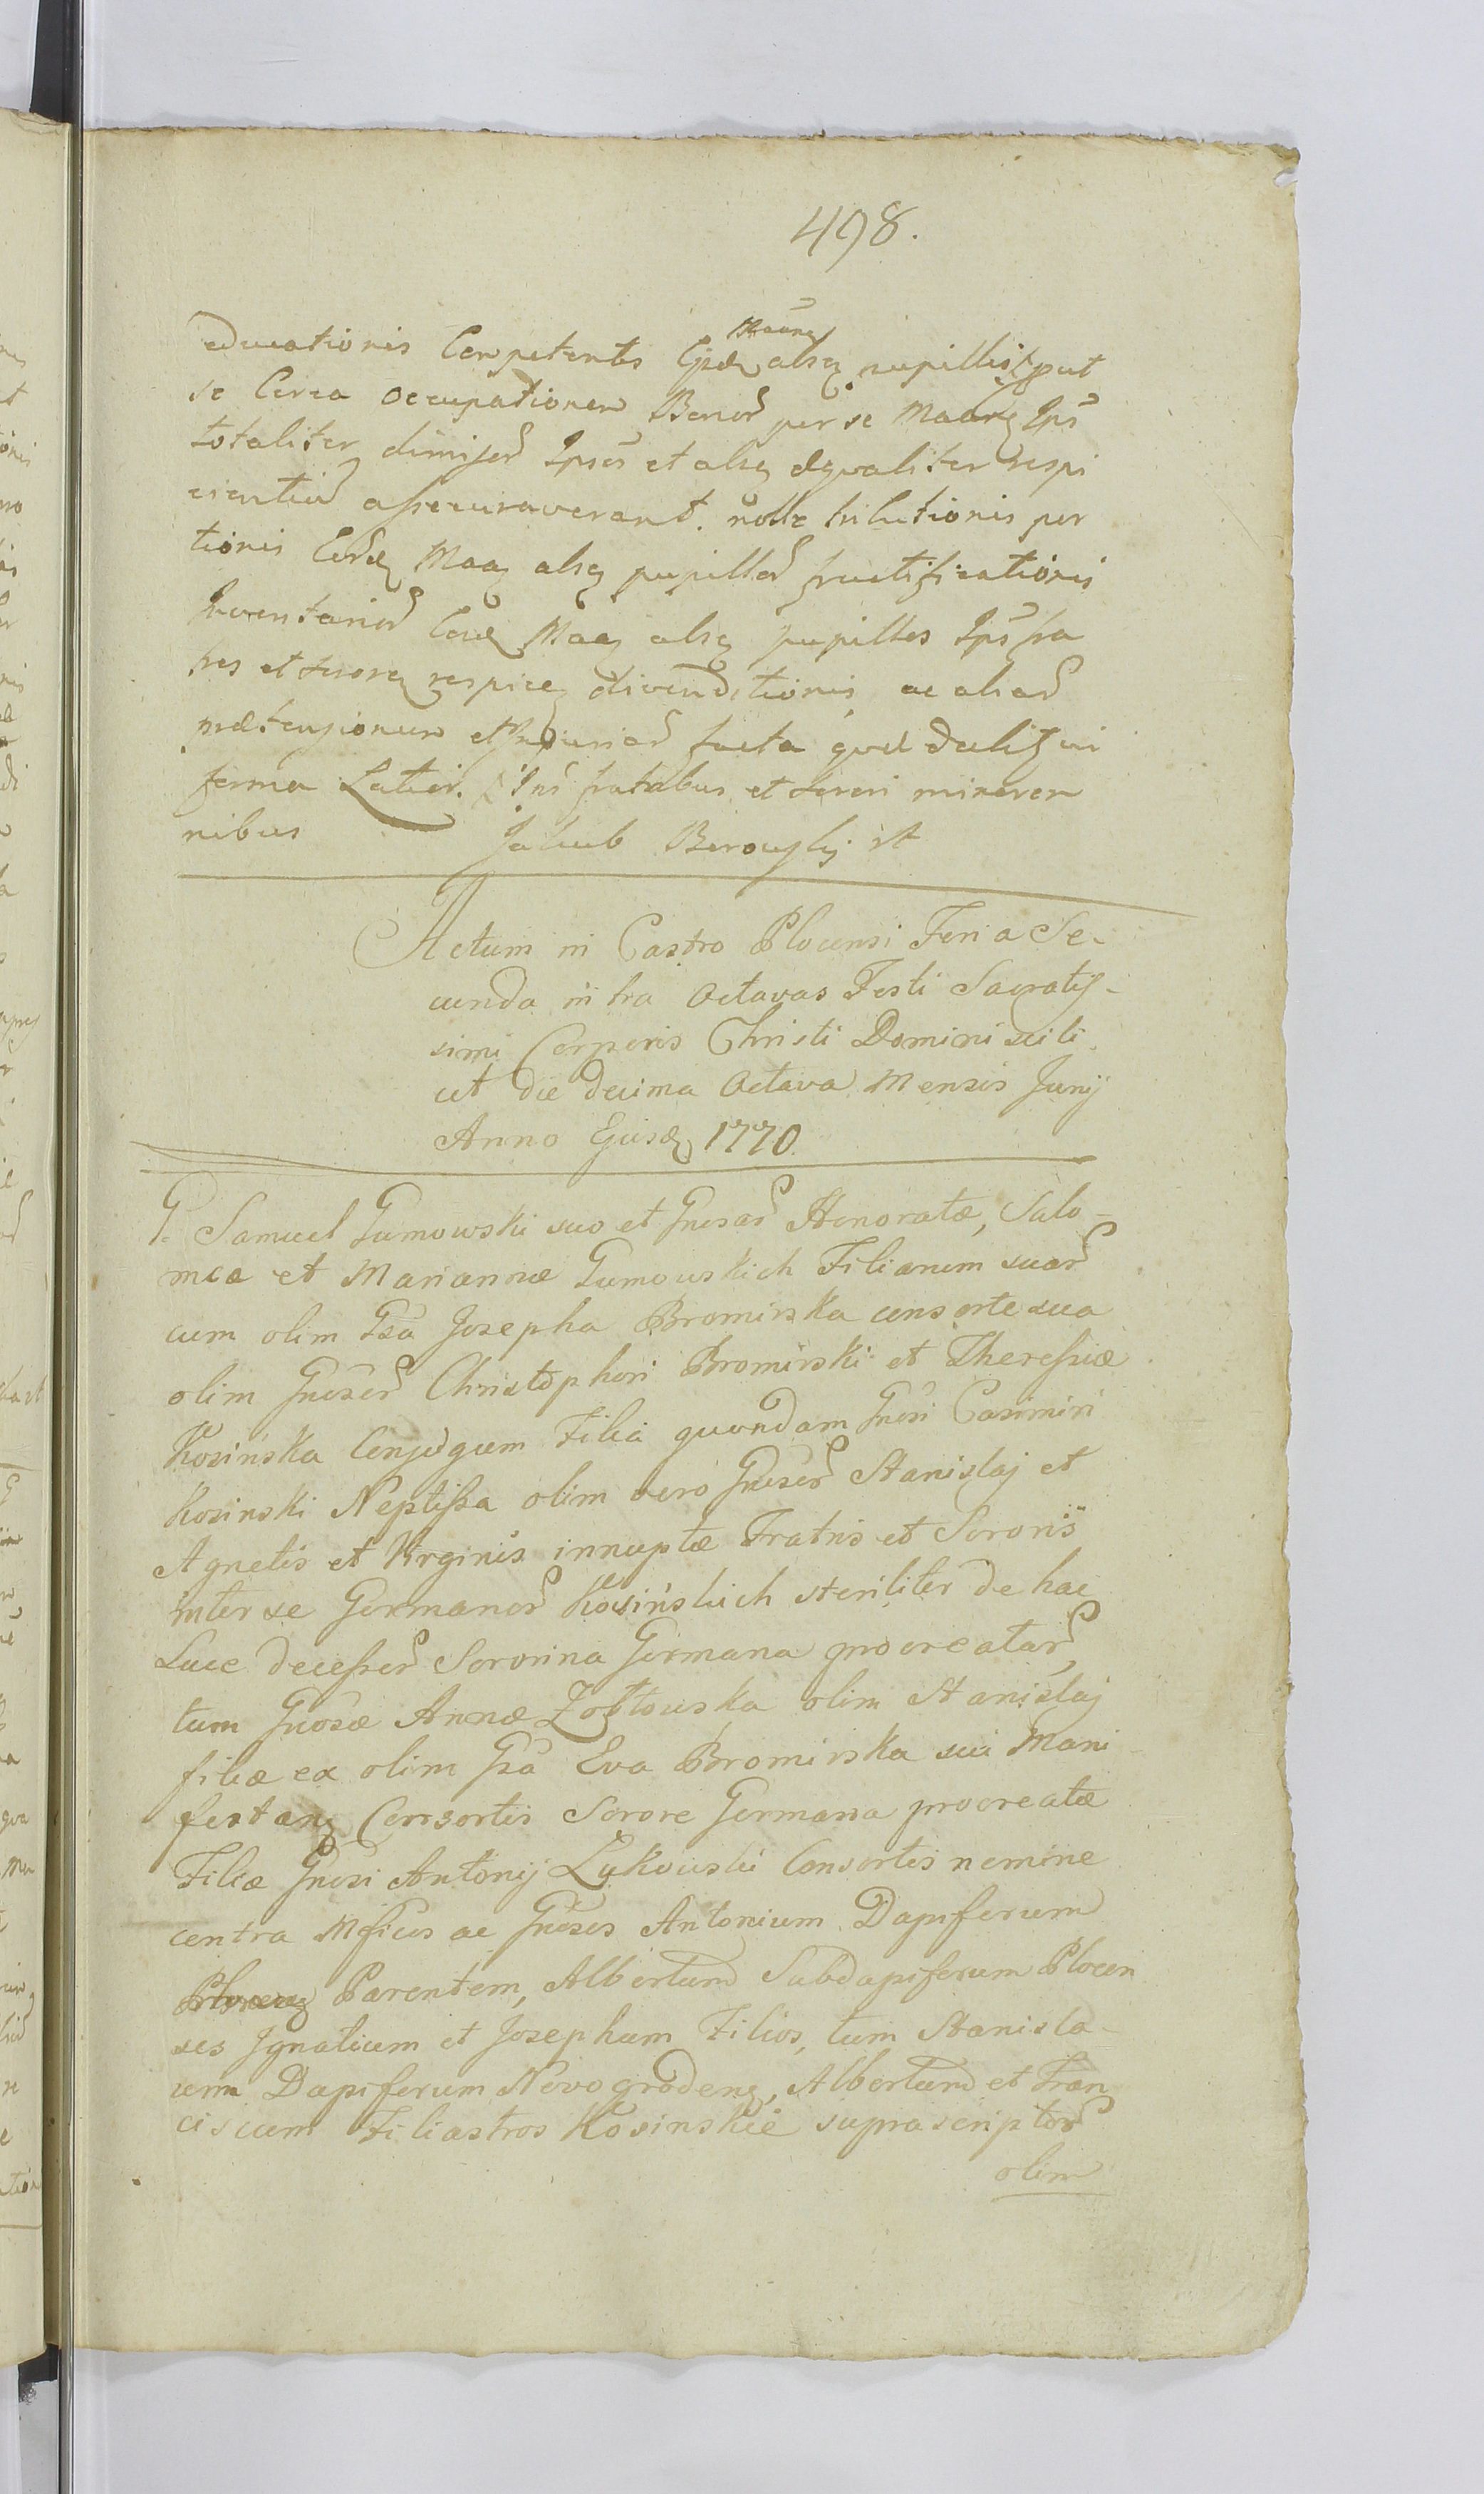 498.
educationis Competentis Ejsdę Maanę alsą pupillis, put
se Circa Occupationem Bonor per se Maanę Ips
totaliter dimissor Ipsos et alsą æqualiter respi
cientiu assecuraverant. nolle tributionis por
tionis Eordę Maaę alsą pupillor fructificationis
Inventarior Eordę Maaę alsą pupillos Ips fra
tres et Sororę respicę divenditionis ac aliar
prætensionum et Injuriar facta qvod Dedit in
forma Latior. Ins fratribus et Sorori minoren
nibus Jakub Borouskj st
Actum in Castro Plocensi Feria Se-
cunda intra Octavas Festi Sacratis-
simi Corporis Christi Domini scili
cet die decima Octava Mensis Junij
Anno Ejusdę 1770.
G. Samuel Gumowski suo et Gnosar Honoratæ, Salo-
meæ et Mariannæ Gumowskich Filiarum suar
cum olim Gsa Josepha Bromirska consorte sua
olim Gnosor Christophori Bromirski et Theressiæ
Kosińska Conjugum Filia quondam Gnosi Casimiri
Kosinski Neptissa olim vero Gnosor Stanislaj et
Agnetis et Virginis innuptæ Fratris et Sororis
inter se Germanor Kosińskich steriliter de hac
Luce decessor Sororina Germana procreatar,
tum Gnosæ Annæ Żółtowska olim Stanislaj
filiæ ex olim Gsa Eva Bromirska sui Mani
festanę Consortis Sorore Germana procreatæ
Filiæ Gnosi Antonij Lykowski Consortis nemine
contra Mficos ac Gnosos Antonium Dapiferum
Plocenę Parentem, Albertum Subdapiferum Plocen
ses Ignatium et Josephum Filios, tum Stanisla-
um Dapiferum Novogrodenę, Albertum et Fran
ciscum Filiastros Kosinskie suprascriptor
olim